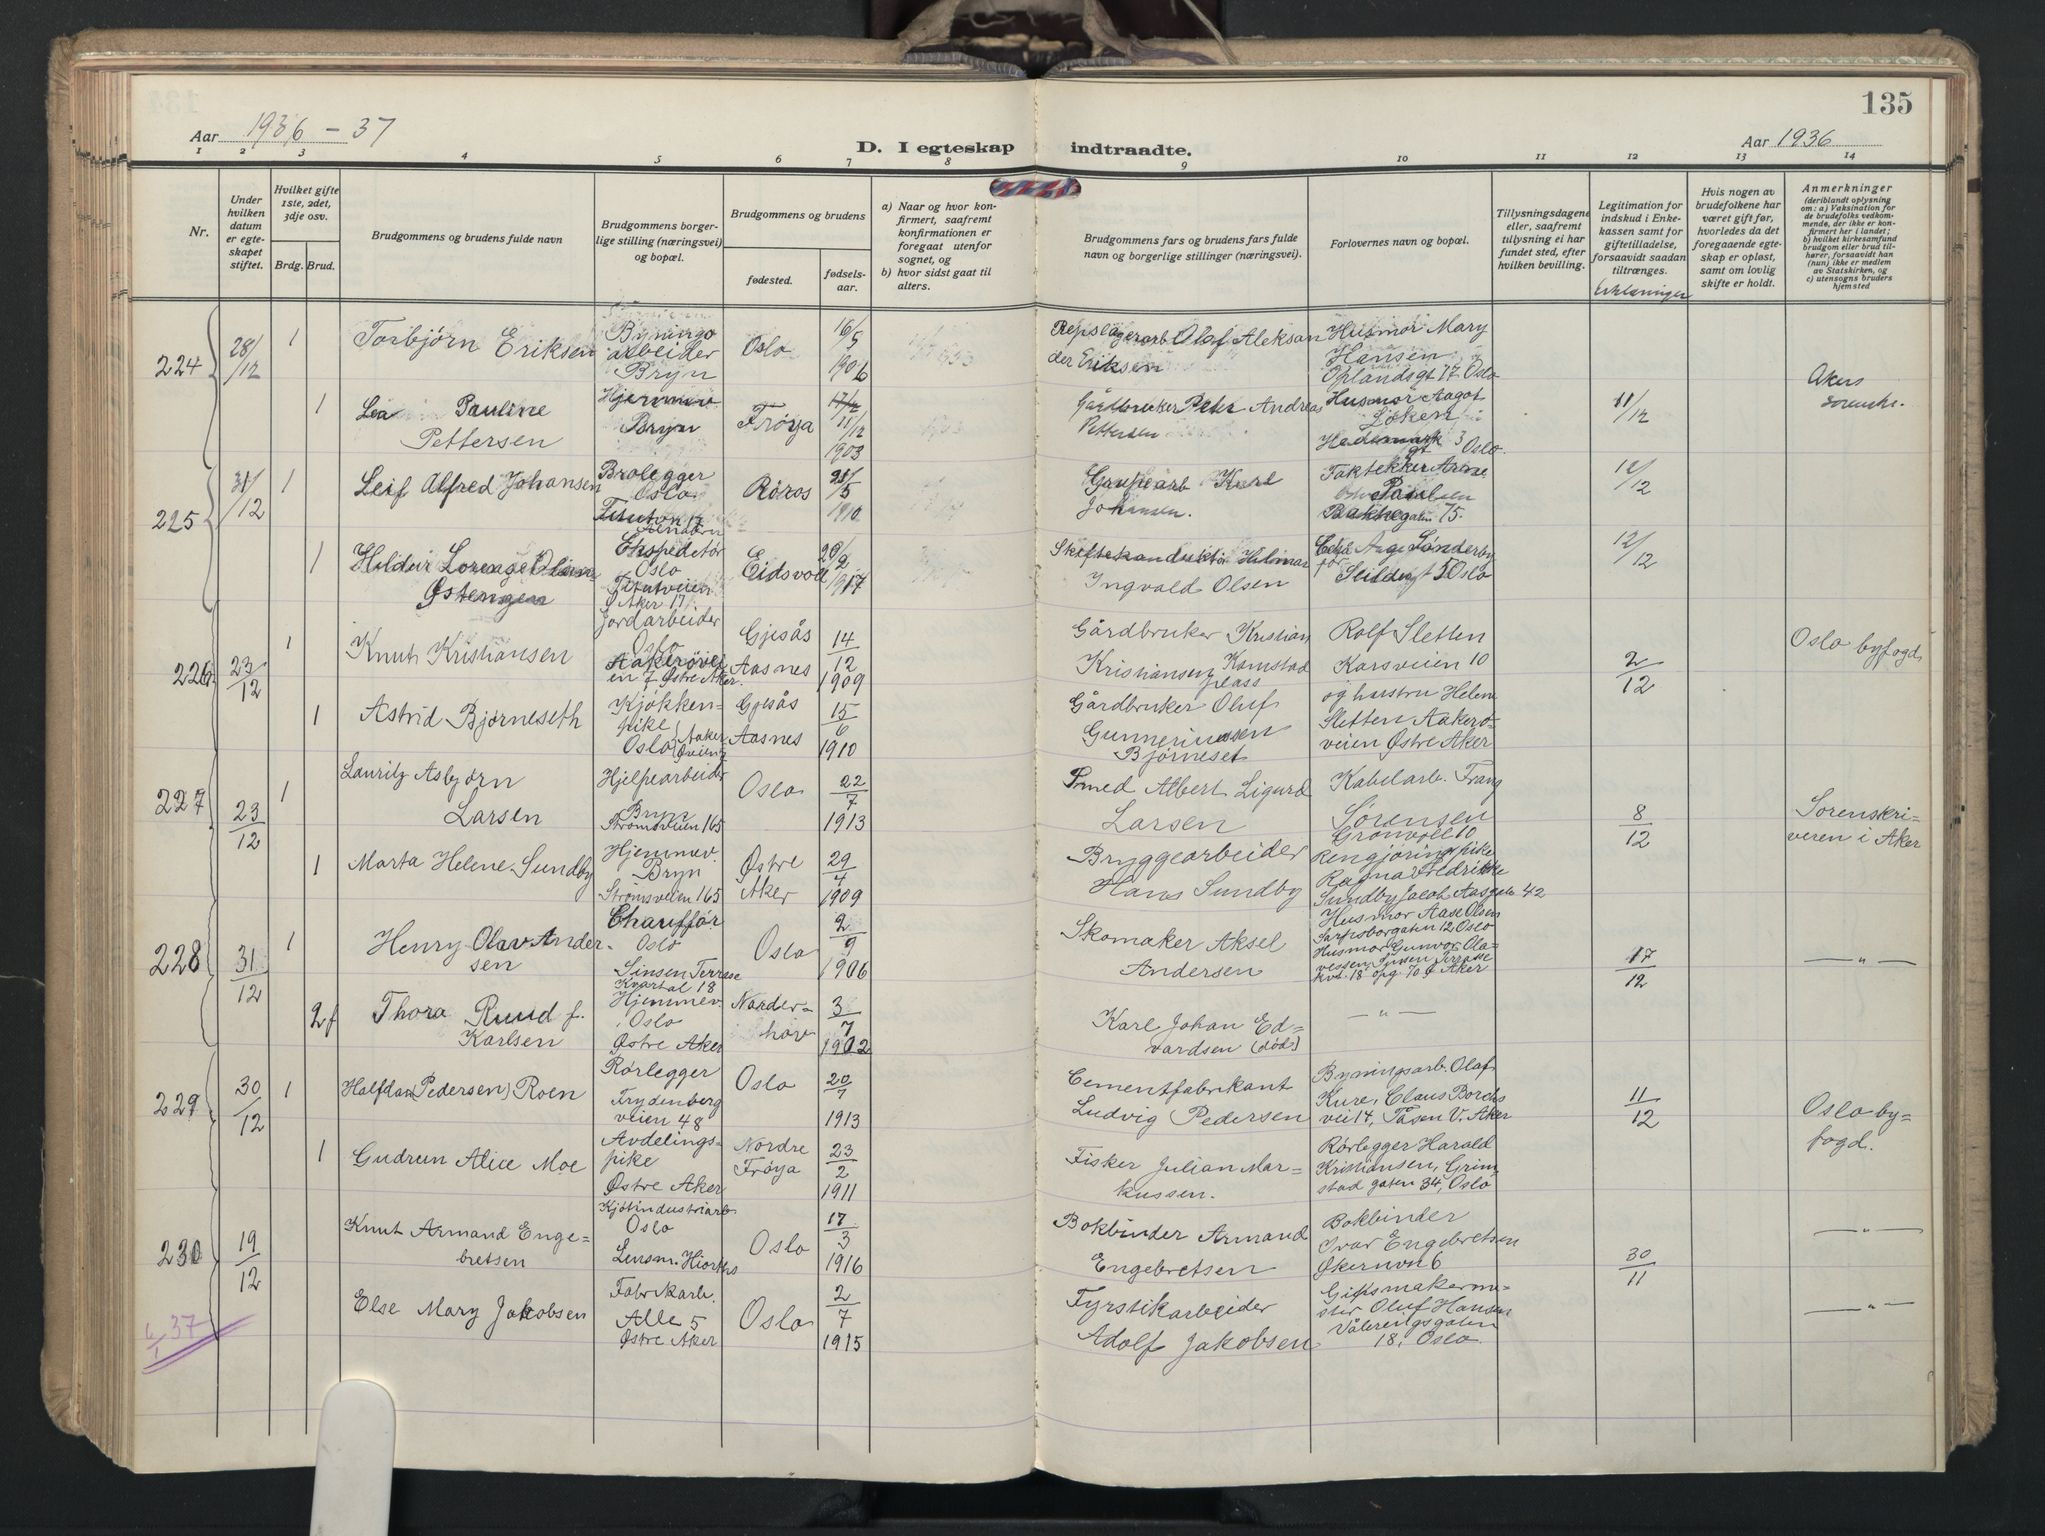 135
Aar 1936 - 37
D. I egteskap indtraadte.
Aar 1936
1 2 3 4 5 6 7 8 9 10 11 12 13 14
Nr.
Under hvilken datum er egteskapet stiftet.
Hvilket gifte 1ste, 2det, 3dje osv.
Brdg. Brud.
Brudgommens og brudens fulde navn
Brudgommens borgerlige stilling (næringsvei) og bopæl.
Brudgommens og brudens
fødested.
fødselsaar.
a) Naar og hvor konfirmert, saafremt konfirmationen er foregaat utenfor sognet, og
b) hvor sidst gaat til alters.
Brudgommens fars og brudens fars fulde navn og borgerlige stillinger (næringsvei).
Forlovernes navn og bopæl.
Tillysningsdagene eller, saafremt tillysning ei har fundet sted, efter hvilken bevilling.
Legitimation for indskud i Enkekassen samt for giftetilladelse, forsaavidt saadan tiltrænges.
Erklæringer
Hvis nogen av brudefolkene har været gift før, hvorledes da det foregaaende egteskap er opløst, samt om lovlig skifte er holdt.
Anmerkninger
(deriblandt oplysning om: a) Vaksination for de brudefolks vedkommende, der ikke er konfirmert her i landet; b) hvilket kirkesamfund brudgom eller brud tilhører, forsaavidt han (hun) ikke er medlem av Statskirken, og c) utensogns bruders hjemsted
224 28/12 1 Torbjørn Eriksen
Bygningsarbeider Bryn
Oslo 16/5 1906
Repslagerarb Olaf Aleksander Eriksen
Husmor Mary Hansen Oplandsgt 17 Oslo
1 Lea Pauline Pettersen
Hjemmev Bryn
Frøya 17/2 11/12 1903
Gårdbruker Peter Andreas Pettersen
Husmor Aagot Løken Hedemarkgt 3 Oslo
11/12
Akers sorenskr.
225 31/12 1 Leif Alfred Johansen
Brolegger Oslo
Røros 21/5 1910
Karl Johansen.
75.
12/12
1 Hildur
Ekspeditør Oslo
Ø Aker 17
Eidsvoll 20/2 1917
Hilmar Ingvald Olsen
Aage Sønderby
5 Oslo
12/12
226 23/12 1 Knut Kristiansen
Jordarbeider Oslo
Aakerøveien 7 Østre Aker.
Gjesås Aasnes 14/12 1909
Gårdbruker Kristian Kristiansen Kamstad plass
Rolf Sletten Karsveien 10
2/12
Oslo byfogd
1 Astrid Bjørneseth
Kjøkkenpike Oslo
Gjesås Aasnes 15/6 1910
Gårdbruker Oluf Gunneriussen Bjørneset
og hustru Helene Sletten Aakerøveien Østre Aker
227 23/12 1 Lauritz Asbjørn Larsen
Hjelpearbeider Bryn Strømsveien 165
Oslo 22/7 1913
Smed Albert Sigurd Larsen
Kabelarb. Franz Sørensen Grønvoll 10
8/12
Sorenskriveren i Aker
1 Marta Helene Sundby
Hjemmev. Bryn Strømsveien 165
Østre Aker 29/4 1909
Bryggearbeider Hans Sundby
Rengjøringspike Ragna Fredrikke Sundby Jacob Aasgate 42
228 31/12 1 Henry Olav Andersen
Chauffør Oslo Sinsen Terrasse Kvartal 18
Oslo 2/9 1906
Skomaker Aksel Andersen
Husmor Aase Olsen Sarpsborgaten 12, Oslo
Husmor Gunvor Olavessen, Sinsen Terrasse Kvt. 18 opg. 70 Ø Aker
17/12
— " —
2f Thora Ruud f. Karlsen
Hjemmev. Oslo Østre Aker
Norderhov 3/7 1902
Karl Johan Edvardsen (død)
— " —
229 30/12 1 Halfdan (Pedersen) Roen
Rørlegger Frydenbergveien 48
Oslo 20/7 1913
Cementfabrikant Ludvig Pedersen
Bygningsarb. Olaf Kure, Claus Borchs vei 14, Tåsen V. Aker
11/12
Oslo byfogd.
1 Gudrun Alice Moe
Avdelingspike Østre Aker
Nordre Frøya 23/2 1911
Fisker Julian Markussen.
Rørlegger Harald Kristiansen, Grimstad gaten 34, Oslo
230 19/12 Knut Armand Engebretsen
Kjøtindustriarb. Oslo Lensm. Hiorths
Oslo 17/3 1916
Bokbinder Armand Engebretsen
Bokbinder Ivar Engebretsen Økernvn 6
30/11
— " —
Else Mary Jakobsen
Fabrikarb. Alle 5 Østre Aker
Oslo 2/7 1915
Fyrstikarbeider Adolf Jakobsen
Gipsmakermester Oluf Hansen Vålerengsgaten 18, Oslo
— " —
6/1 37